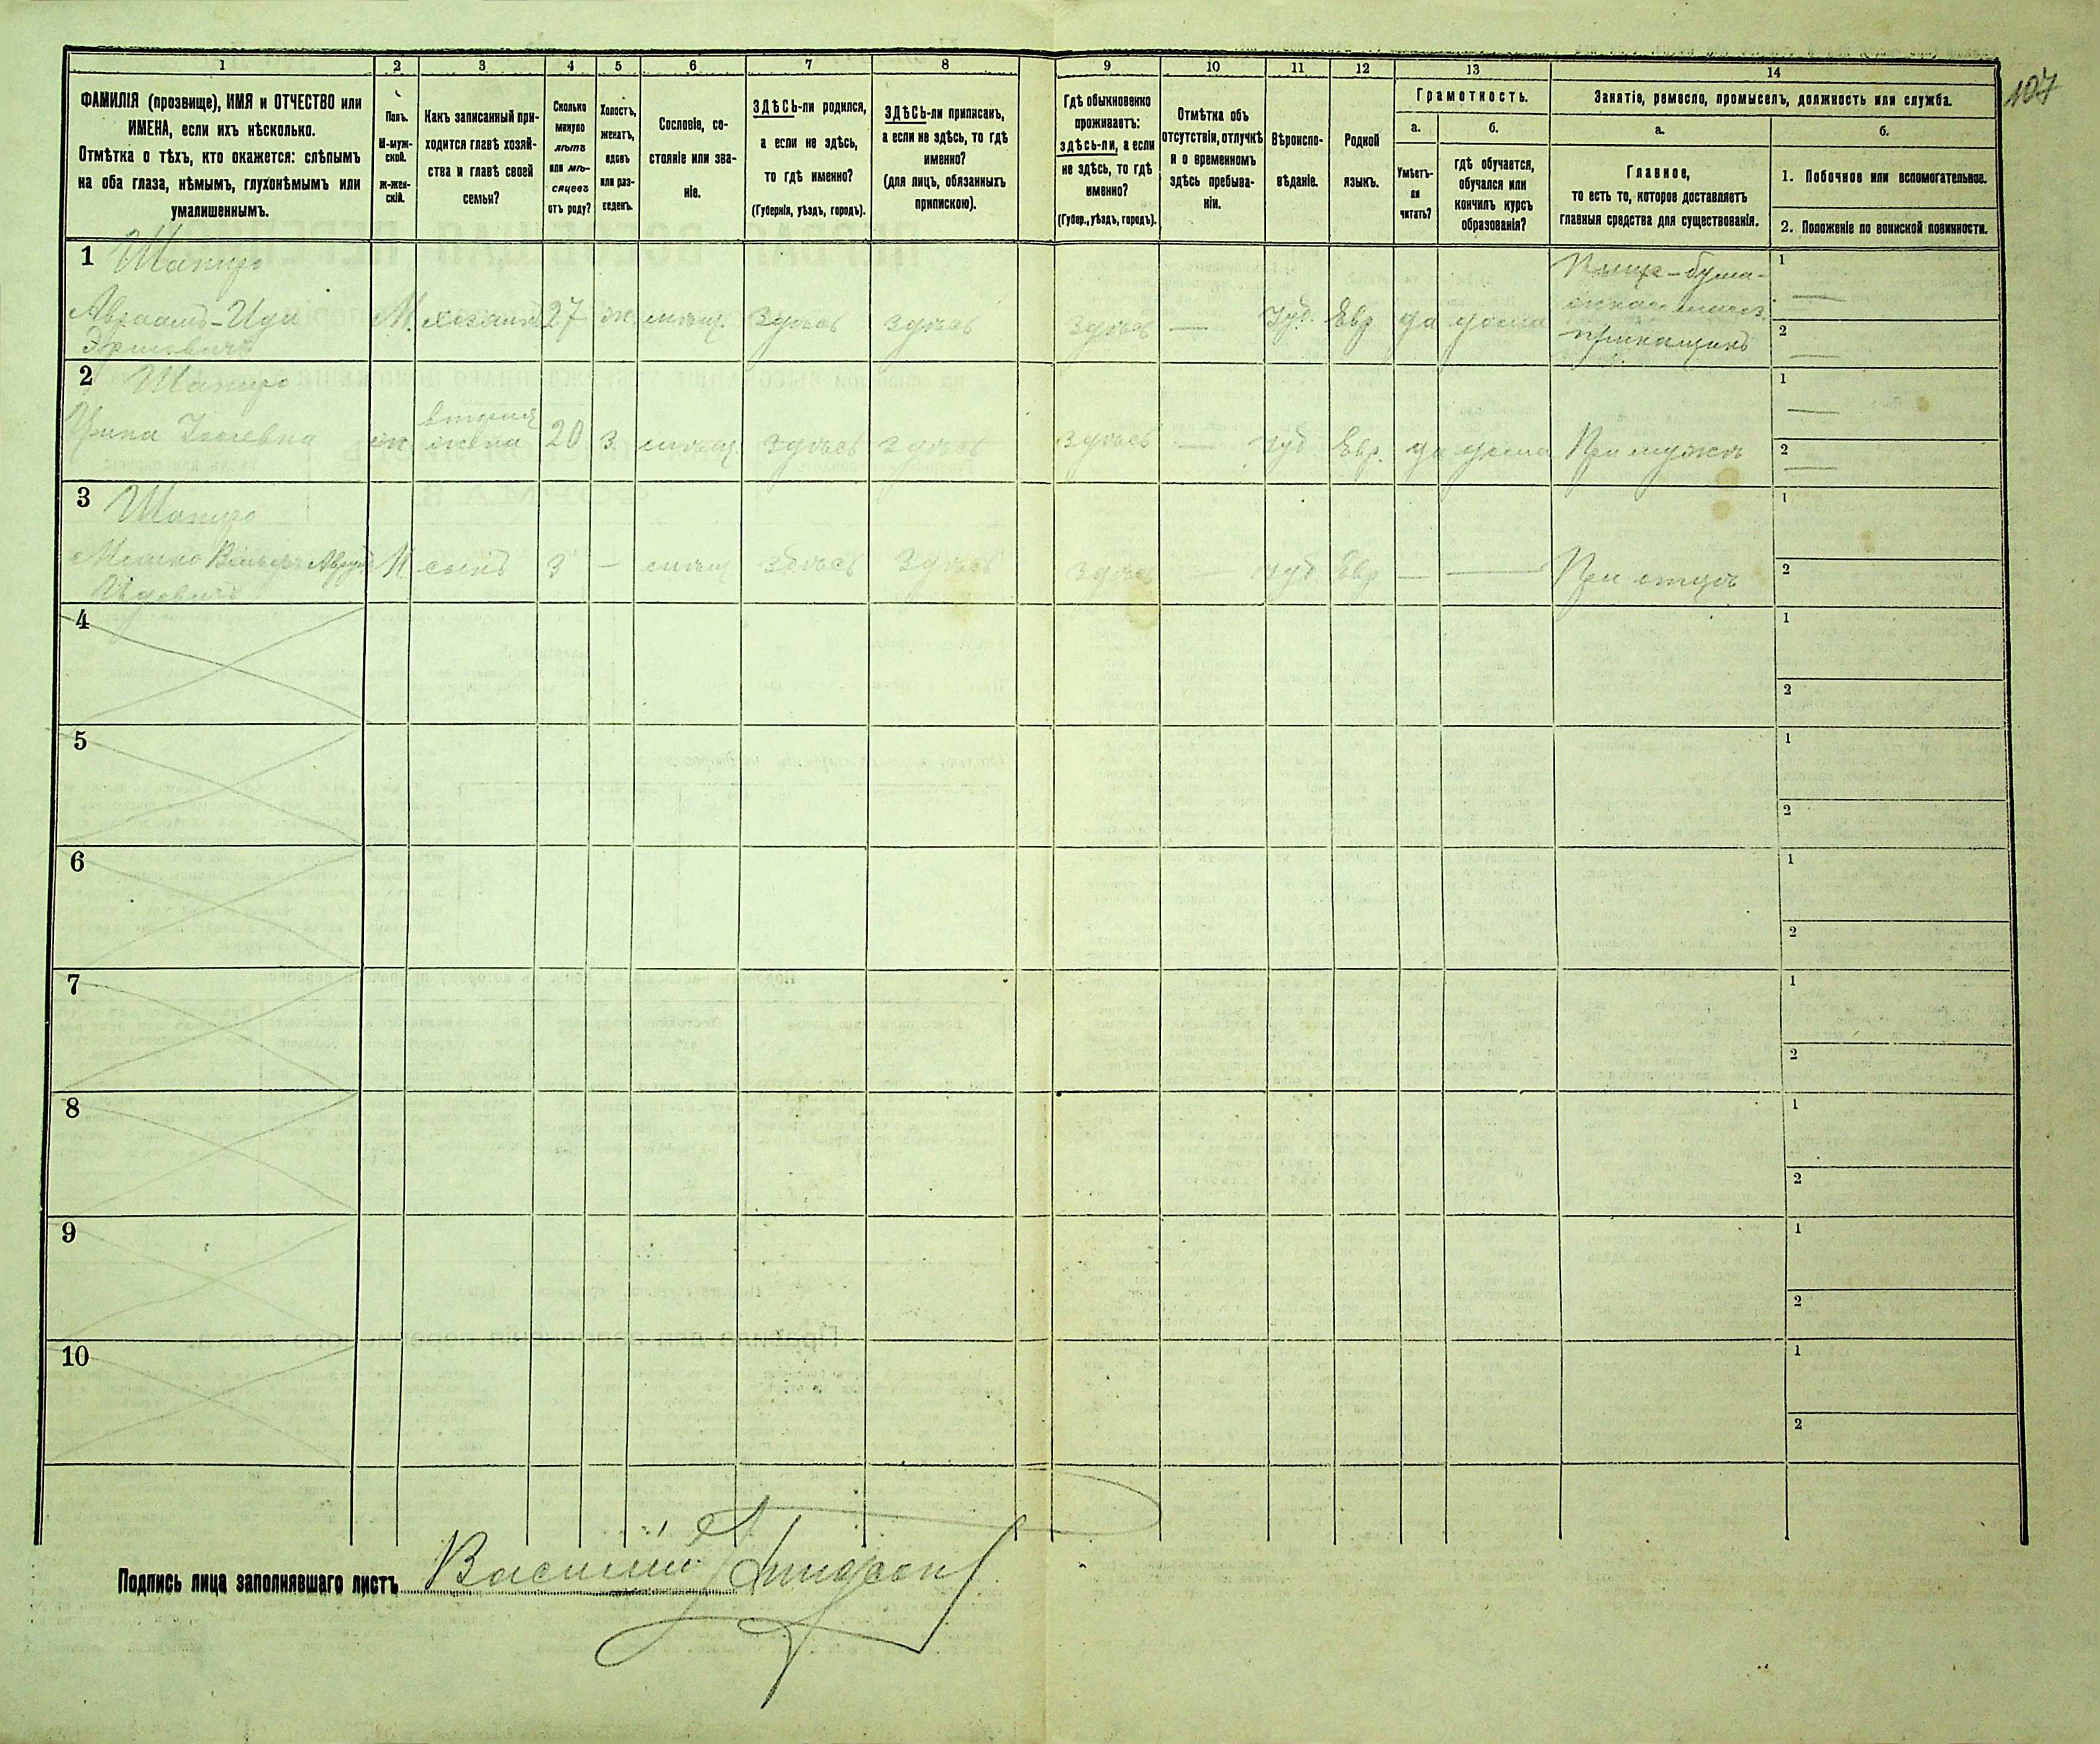 107
1 2 3 4 5 6 7 8 9 10 11 12 13 14
ФАМИЛІЯ (прозвище), ИМЯ и ОТЧЕСТВО или
ИМЕНА, если ихъ нѣсколько.
Отмѣтка о тѣхъ, кто окажется: слѣпымъ
на оба глаза, нѣмымъ, глухонѣмымъ или
умалишеннымъ.
Полъ.
М-муж-
ской.
ж-жен-
скій.
Какъ записанный при-
ходится главѣ хозяй-
ства и главѣ своей
семьи?
Сколько
минуло
лѣтъ
или мѣ-
сяцевъ
отъ роду?
Холостъ,
женатъ,
вдовъ
или раз-
веденъ.
Сословіе, со-
стояніе или зва-
ніе.
ЗДѢСЬ-ли родился,
а если не здѣсь,
то гдѣ именно?
(Губернія, уѣздъ, городъ).
ЗДѢСЬ-ли приписанъ,
а если не здѣсь, то гдѣ
именно?
(для лицъ, обязанныхъ
припискою).
Гдѣ обыкновенно
проживаетъ:
здѣсь-ли, а если
не здѣсь, то гдѣ
именно?
(Губер., уѣздъ, городъ).
Отмѣтка объ
отсутствіи, отлучкѣ
и о временномъ
здѣсь пребыва-
ніи.
Вѣроиспо-
вѣданіе.
Родной
языкъ.
Грамотность.
а.
Умѣетъ-
ли
читать?
б.
гдѣ обучается,
обучался или
кончилъ курсъ
образованія?
Занятіе, ремесло, промыселъ, должность или служба.
а.
Главное,
то есть то, которое доставляетъ
главныя средства для существованія.
б.
1. Побочное или вспомогательное.
2. Положеніе по воинской повинности.
1 Шапиро
Авраамъ-Ице М. хозяинъ 27 ж. мѣщ. Здѣсь здѣсь здѣсь — Іуд. Евр да дома
приказчикъ
1 —
2 —
2 Шапиро
вторая
Іоселевна ж жена 20 з. мѣщ. здѣсь здѣсь здѣсь — Іуд Евр. да дома При мужѣ
1 —
2 —
3 Шапиро
М сынъ 3 — мѣщ здѣсь здѣсь здѣсь — Іуд. Евр — — При отцѣ
1
2
4
1
2
5
1
2
6
1
2
7
1
2
8
1
2
9
1
2
10
1
2
Подпись лица заполнявшаго листъ Василій